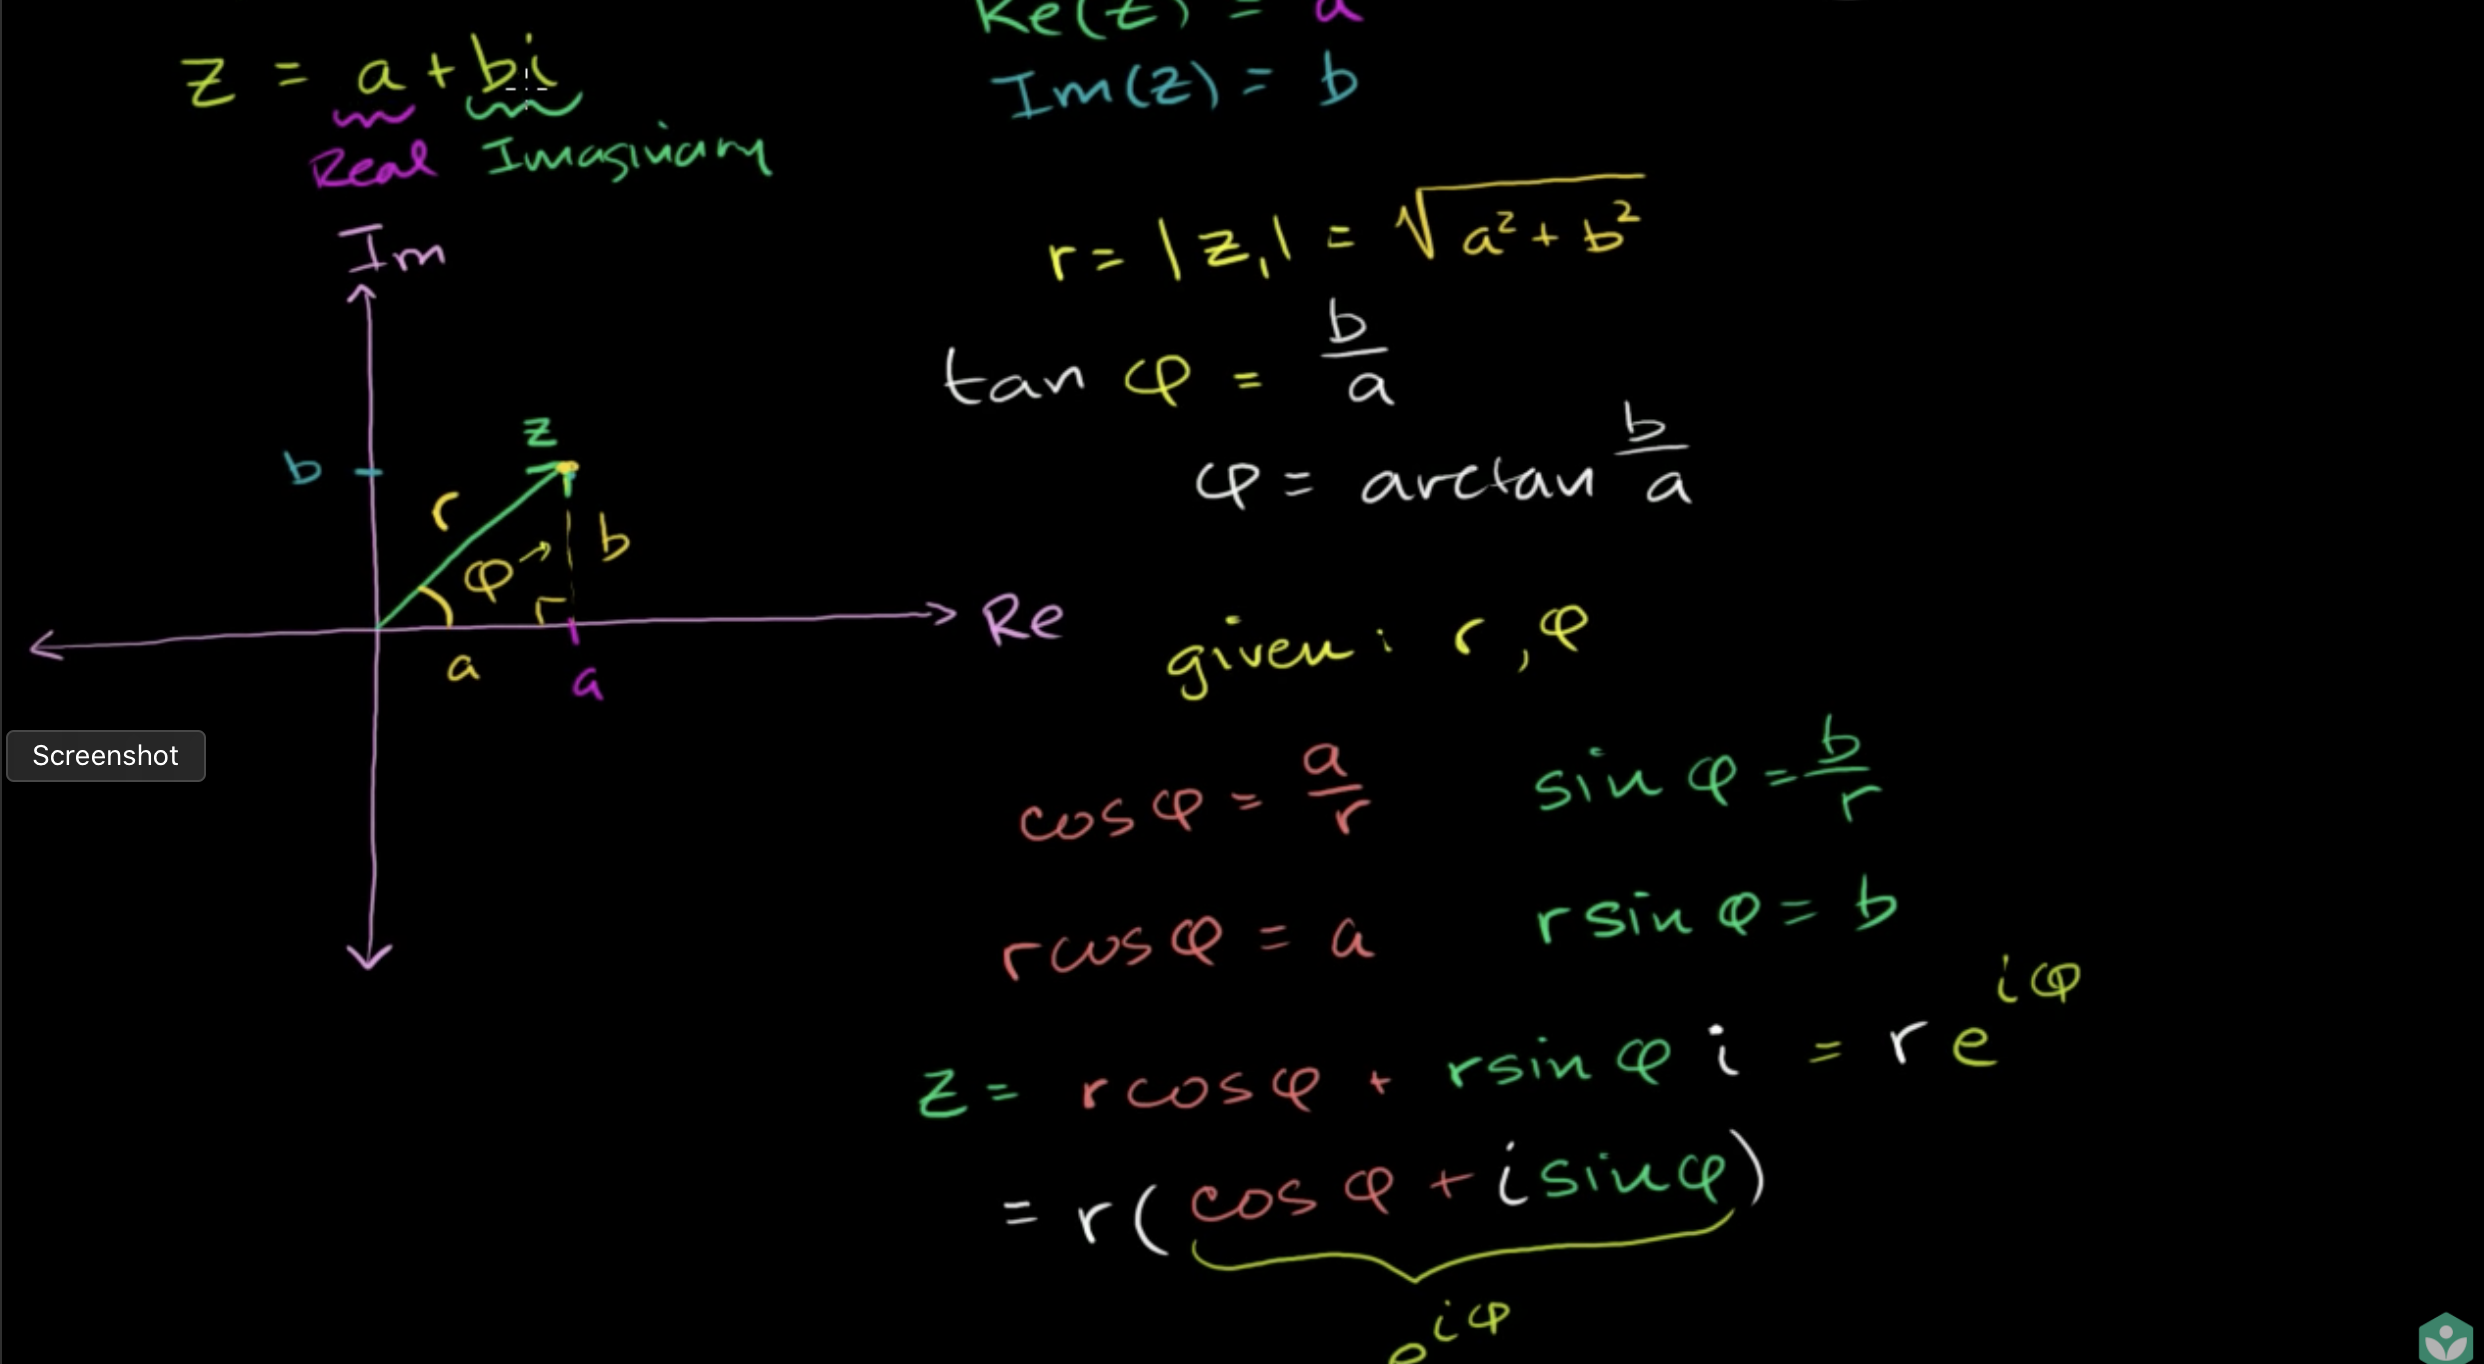 z = a + bi
Real Imaginary
Im
z
b
r
φ
b
Re
a
a
Screenshot
Re(z) = a
Im(z) = b
r = |z₁| = √(a² + b²)
tan φ = b/a
φ = arctan b/a
given: r, φ
cos φ = a/r
sin φ = b/r
r cos φ = a
r sin φ = b
z = r cos φ + r sin φ i = r e^{iφ}
= r(cos φ + i sin φ)
e^{iφ}